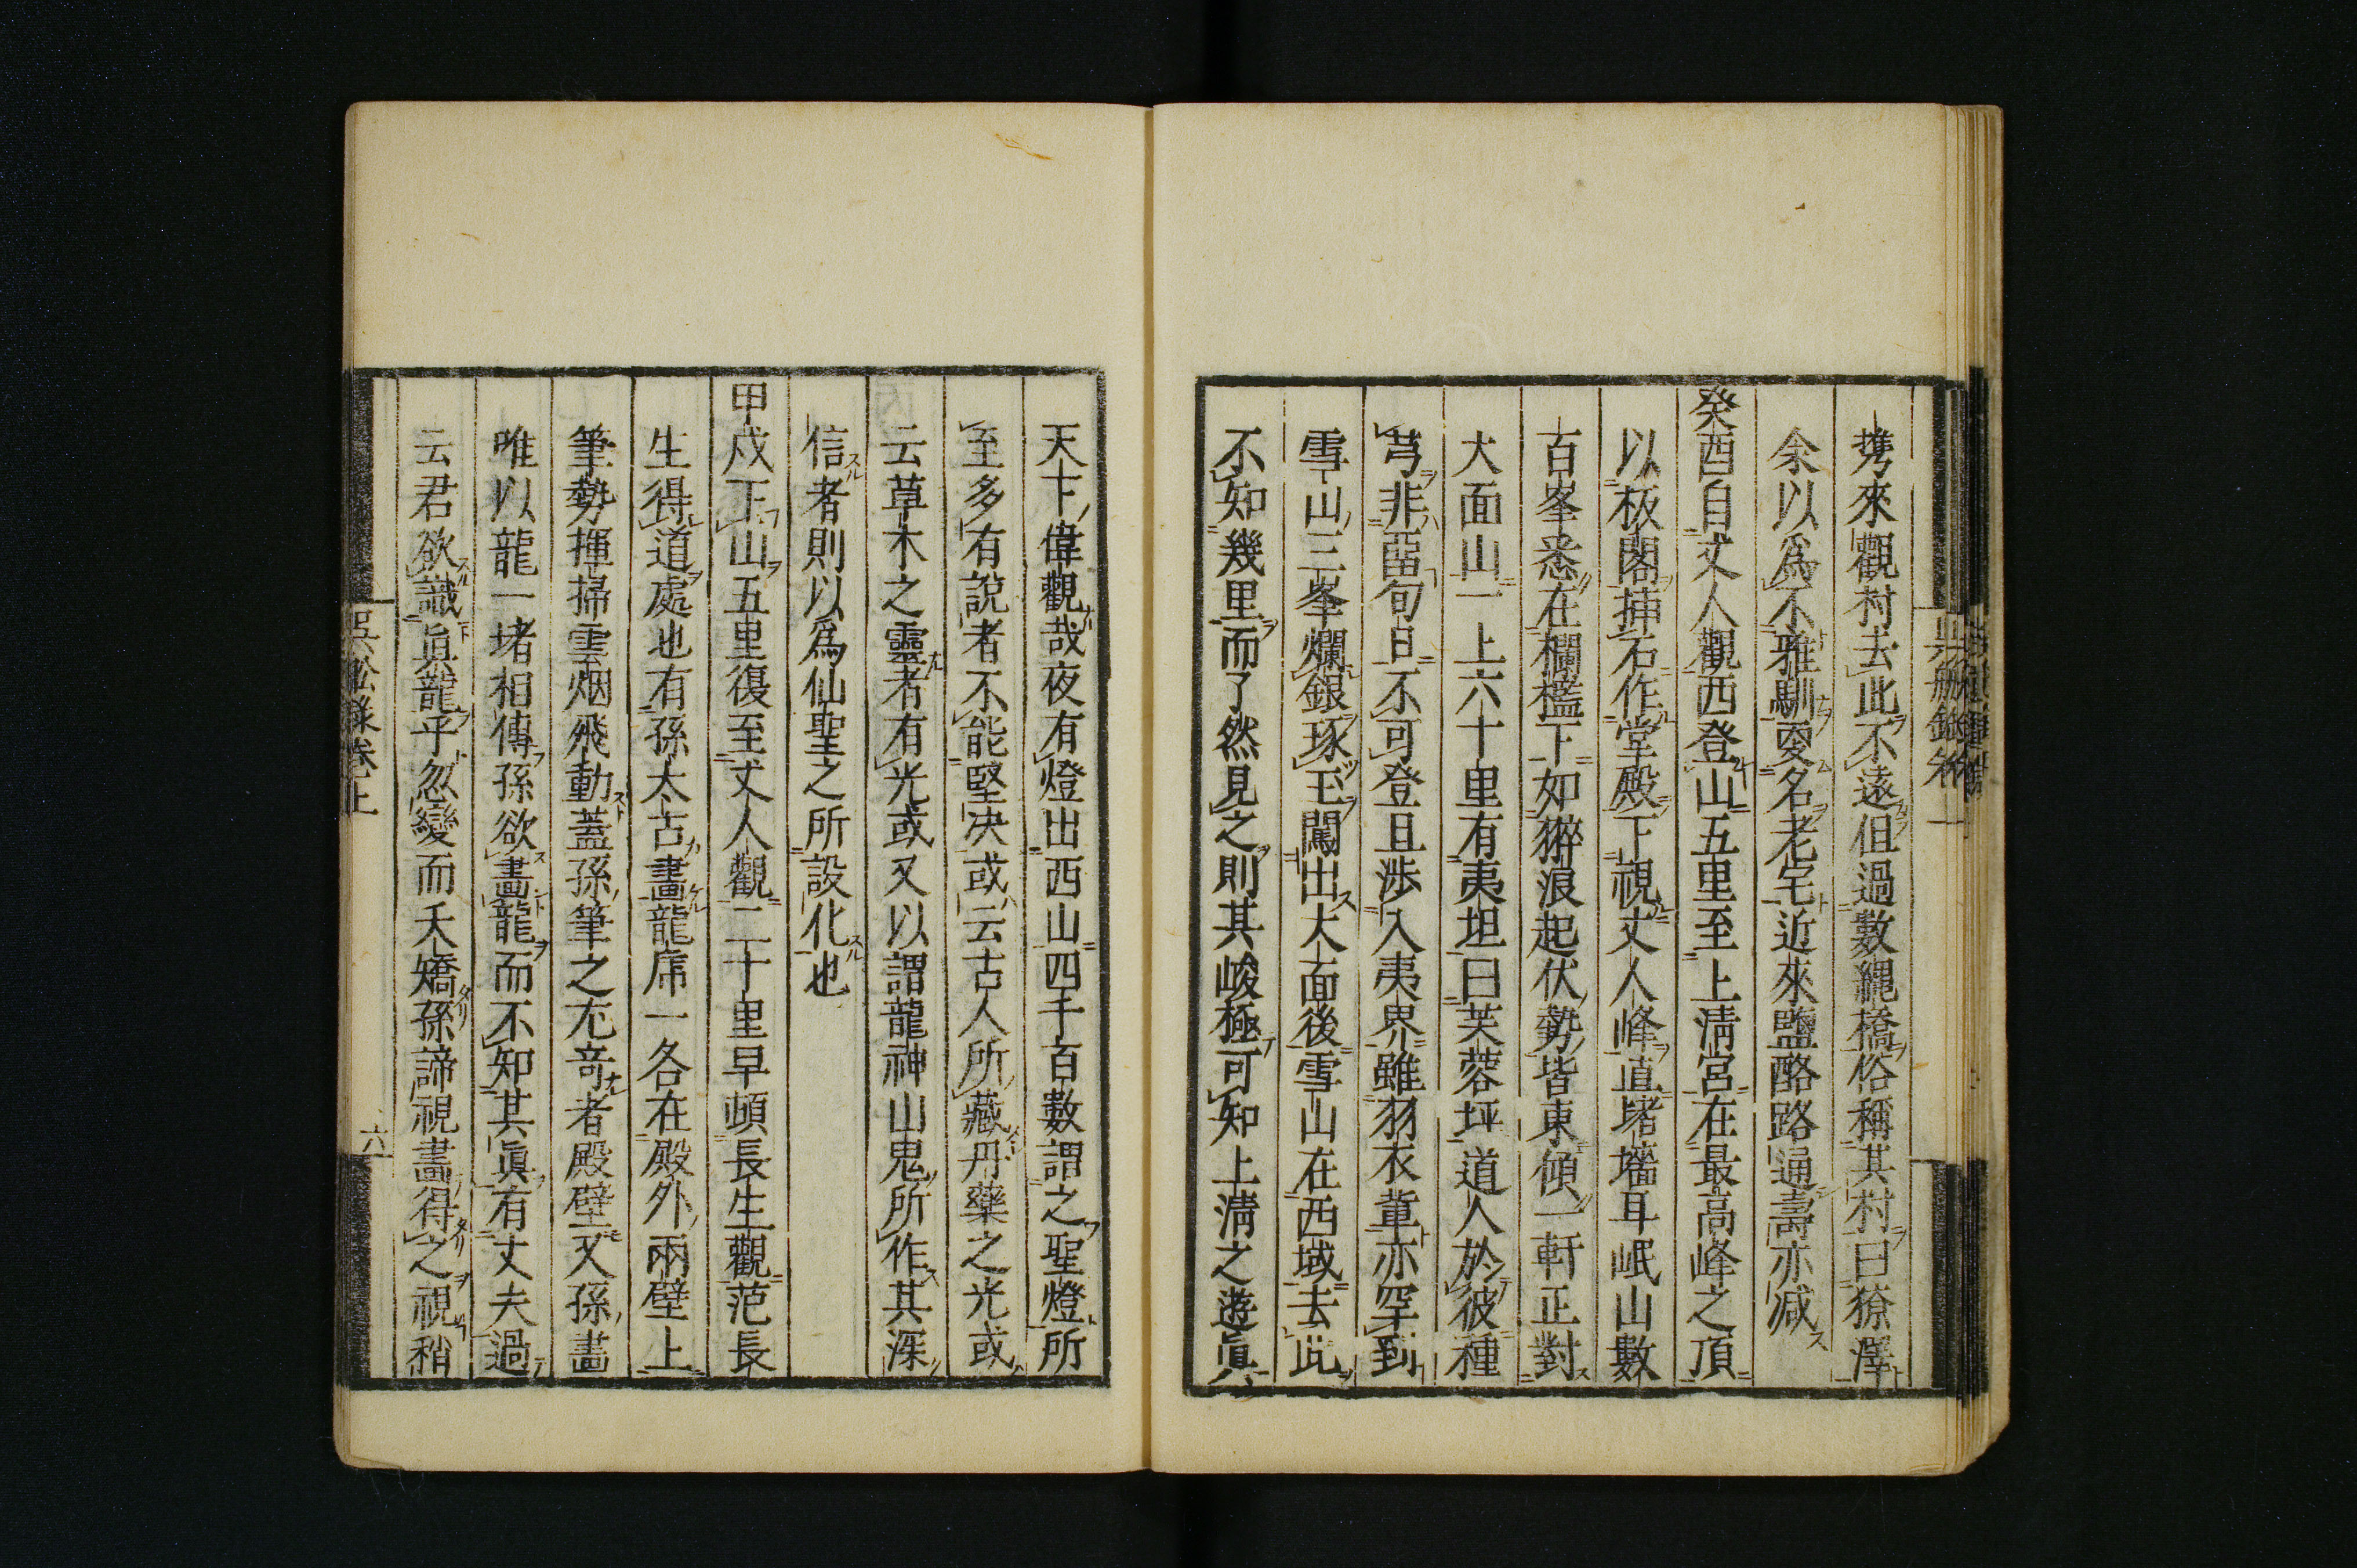 携來觀村去此不遠但過數繩橋俗稱其村曰獠澤
余以爲不雅馴耍名老宅近來鹽酪路通壽亦减
癸酉自丈人觀西登山五里至上清宮在最高峰之頂
以板閣揷石作堂殿下視丈人峰直堵墻耳岷山數
百峯悉在欄檻下如㵿浪起伏勢皆東傾一軒正對
大面山一上六十里有夷坦曰芙蓉坪道人於彼種
芎非畱旬日不可登且涉入夷界雖羽衣輩亦罕到
雪山三峯爛銀琢玉闖出大面後雪山在西域去此
不知幾里而了然見之則其峻極可知上清之遊眞
天下偉觀哉夜有燈出西山四千百數謂之聖燈所
至多有說者不能堅决或云古人所藏丹藥之光或
云草木之靈者有光或又以謂龍神山鬼所作其深
信者則以爲仙聖之所設化也
甲戌下山五里復至丈人觀二十里早頓長生觀范長
生得道處也有孫太古畫龍虎一各在殿外兩壁上
筆勢揮掃雲烟飛動蓋孫筆之尤奇者殿壁又孫畫
唯以龍一堵相傳孫欲畫龍而不知其眞有丈夫過
云君欲識眞龍乎忽變而夭矯孫諦視畫得之視稍
吳船錄卷上
六